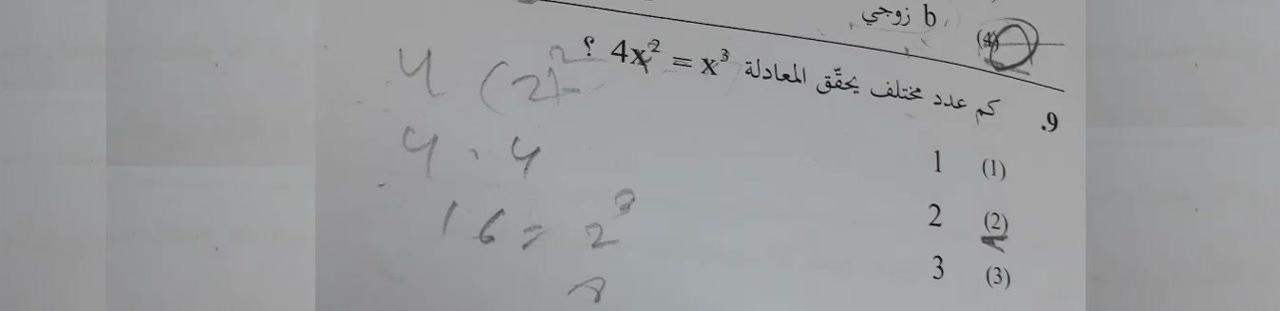 b زوجي
(4)
9. كم عدد مختلف يحقّق المعادلة 4x² = x³ ؟
(1) 1
(2) 2
(3) 3
4 (2)²
4 . 4
16 = 2³
8